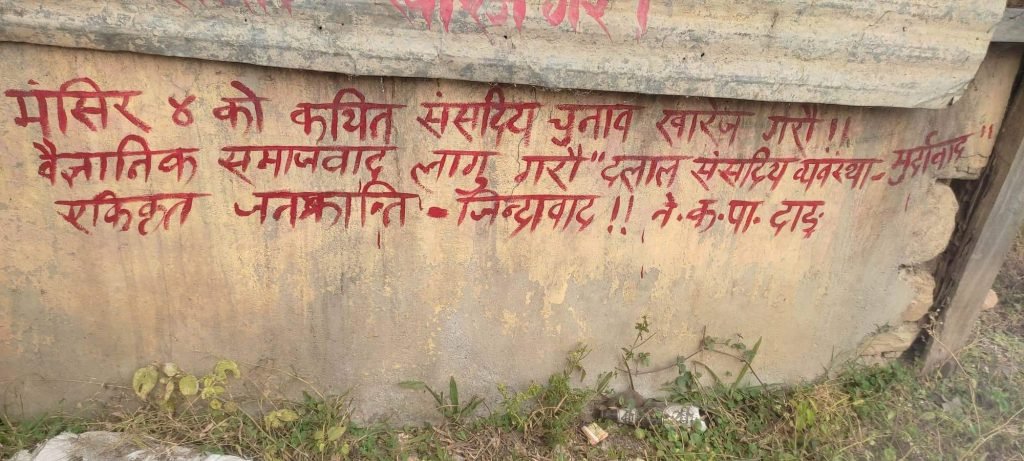 खारेज गरौं ।
मंसिर ४ को कथित संसदिय चुनाव खारेज गरौं !!
वैज्ञानिक समाजवाद लागु गरौं " दलाल संसदिय व्यवस्था - मुर्दावाद "
एकिकृत जनक्रान्ति - जिन्दावाद !! ने.क.पा. दाङ